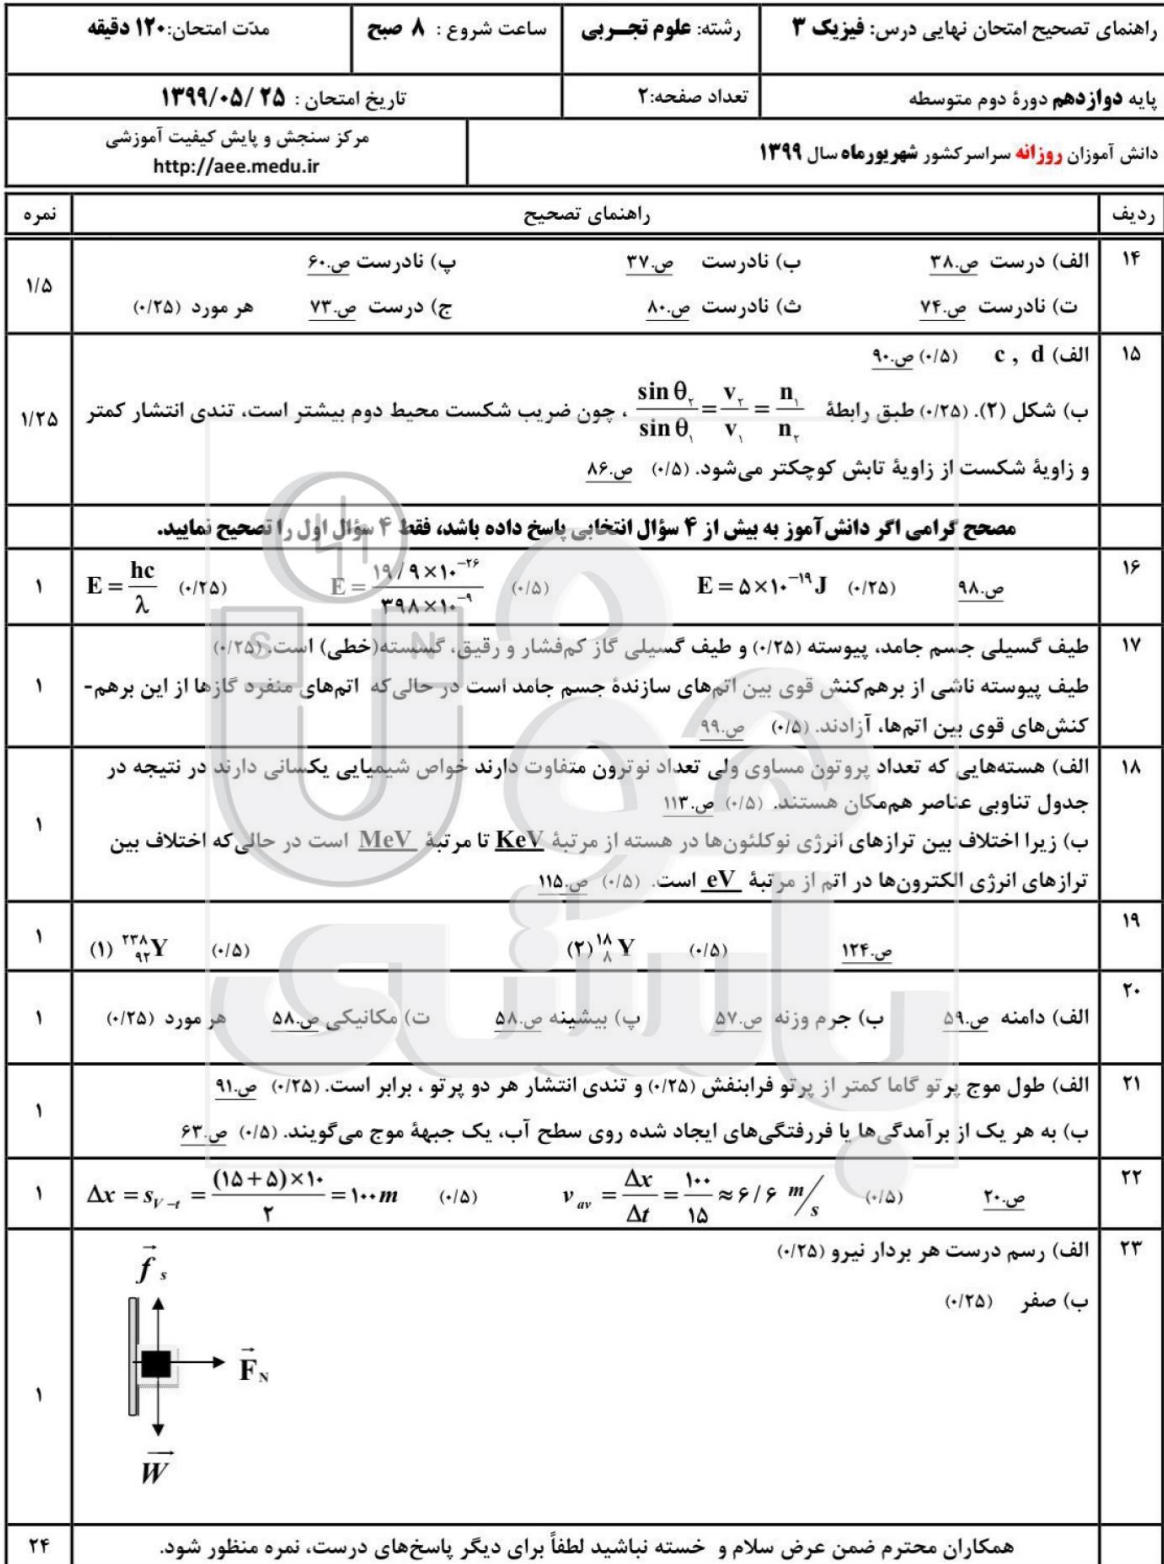 راهنمای تصحیح امتحان نهایی درس: فیزیک ۳
رشته: علوم تجــربی
ساعت شروع : ۸ صبح
مدّت امتحان:۱۲۰ دقیقه
پایه دوازدهم دورهٔ دوم متوسطه
تعداد صفحه:۲
تاریخ امتحان : ۲۵ /۱۳۹۹/۰۵
دانش آموزان روزانه سراسرکشور شهریورماه سال ۱۳۹۹
مرکز سنجش و پایش کیفیت آموزشی
http://aee.medu.ir
ردیف راهنمای تصحیح نمره
۱۴ الف) درست ص.۳۸ ب) نادرست ص.۳۷ پ) نادرست ص.۶۰
ت) نادرست ص.۷۴ ث) نادرست ص.۸۰ ج) درست ص.۷۳ هر مورد (۰/۲۵) ۱/۵
۱۵ الف) c , d (۰/۵) ص.۹۰
ب) شکل (۲). (۰/۲۵) طبق رابطهٔ sin θ₂ / sin θ₁ = v₂ / v₁ = n₁ / n₂ ، چون ضریب شکست محیط دوم بیشتر است، تندی انتشار کمتر ۱/۲۵
و زاویهٔ شکست از زاویهٔ تابش کوچکتر می‌شود. (۰/۵) ص.۸۶
مصحح گرامی اگر دانش‌آموز به بیش از ۴ سؤال انتخابی پاسخ داده باشد، فقط ۴ سؤال اول را تصحیح نمایید.
۱۶ E = hc / λ (۰/۲۵) E = ۱۹/۹×۱۰⁻²⁶ / ۳۹۸×۱۰⁻⁹ (۰/۵) E = ۵×۱۰⁻¹⁹ J (۰/۲۵) ص.۹۸ ۱
۱۷ طیف گسیلی جسم جامد، پیوسته (۰/۲۵) و طیف گسیلی گاز کم‌فشار و رقیق، گسسته(خطی) است. (۰/۲۵)
طیف پیوسته ناشی از برهم‌کنش قوی بین اتم‌های سازندهٔ جسم جامد است در حالی‌که اتم‌های منفرد گازها از این برهم- ۱
کنش‌های قوی بین اتم‌ها، آزادند. (۰/۵) ص.۹۹
۱۸ الف) هسته‌هایی که تعداد پروتون مساوی ولی تعداد نوترون متفاوت دارند خواص شیمیایی یکسانی دارند در نتیجه در
جدول تناوبی عناصر هم‌مکان هستند. (۰/۵) ص.۱۱۳ ۱
ب) زیرا اختلاف بین ترازهای انرژی نوکلئون‌ها در هسته از مرتبهٔ KeV تا مرتبهٔ MeV است در حالی‌که اختلاف بین
ترازهای انرژی الکترون‌ها در اتم از مرتبهٔ eV است. (۰/۵) ص.۱۱۵
۱۹ (۱) ²³⁸₉₂Y (۰/۵) (۲) ¹⁸₈Y (۰/۵) ص.۱۲۴ ۱
۲۰ الف) دامنه ص.۵۹ ب) جرم وزنه ص.۵۷ پ) بیشینه ص.۵۸ ت) مکانیکی ص.۵۸ هر مورد (۰/۲۵) ۱
۲۱ الف) طول موج پرتو گاما کمتر از پرتو فرابنفش (۰/۲۵) و تندی انتشار هر دو پرتو ، برابر است. (۰/۲۵) ص.۹۱
ب) به هر یک از برآمدگی‌ها یا فررفتگی‌های ایجاد شده روی سطح آب، یک جبههٔ موج می‌گویند. (۰/۵) ص.۶۳ ۱
۲۲ Δx = s_{V-t} = (۱۵+۵)×۱۰ / ۲ = ۱۰۰m (۰/۵) v_av = Δx / Δt = ۱۰۰ / ۱۵ ≈ ۶/۶ m/s (۰/۵) ص.۲۰ ۱
۲۳ الف) رسم درست هر بردار نیرو (۰/۲۵)
ب) صفر (۰/۲۵) ۱
f s
F N
W
همکاران محترم ضمن عرض سلام و خسته نباشید لطفاً برای دیگر پاسخ‌های درست، نمره منظور شود. ۲۴
S N